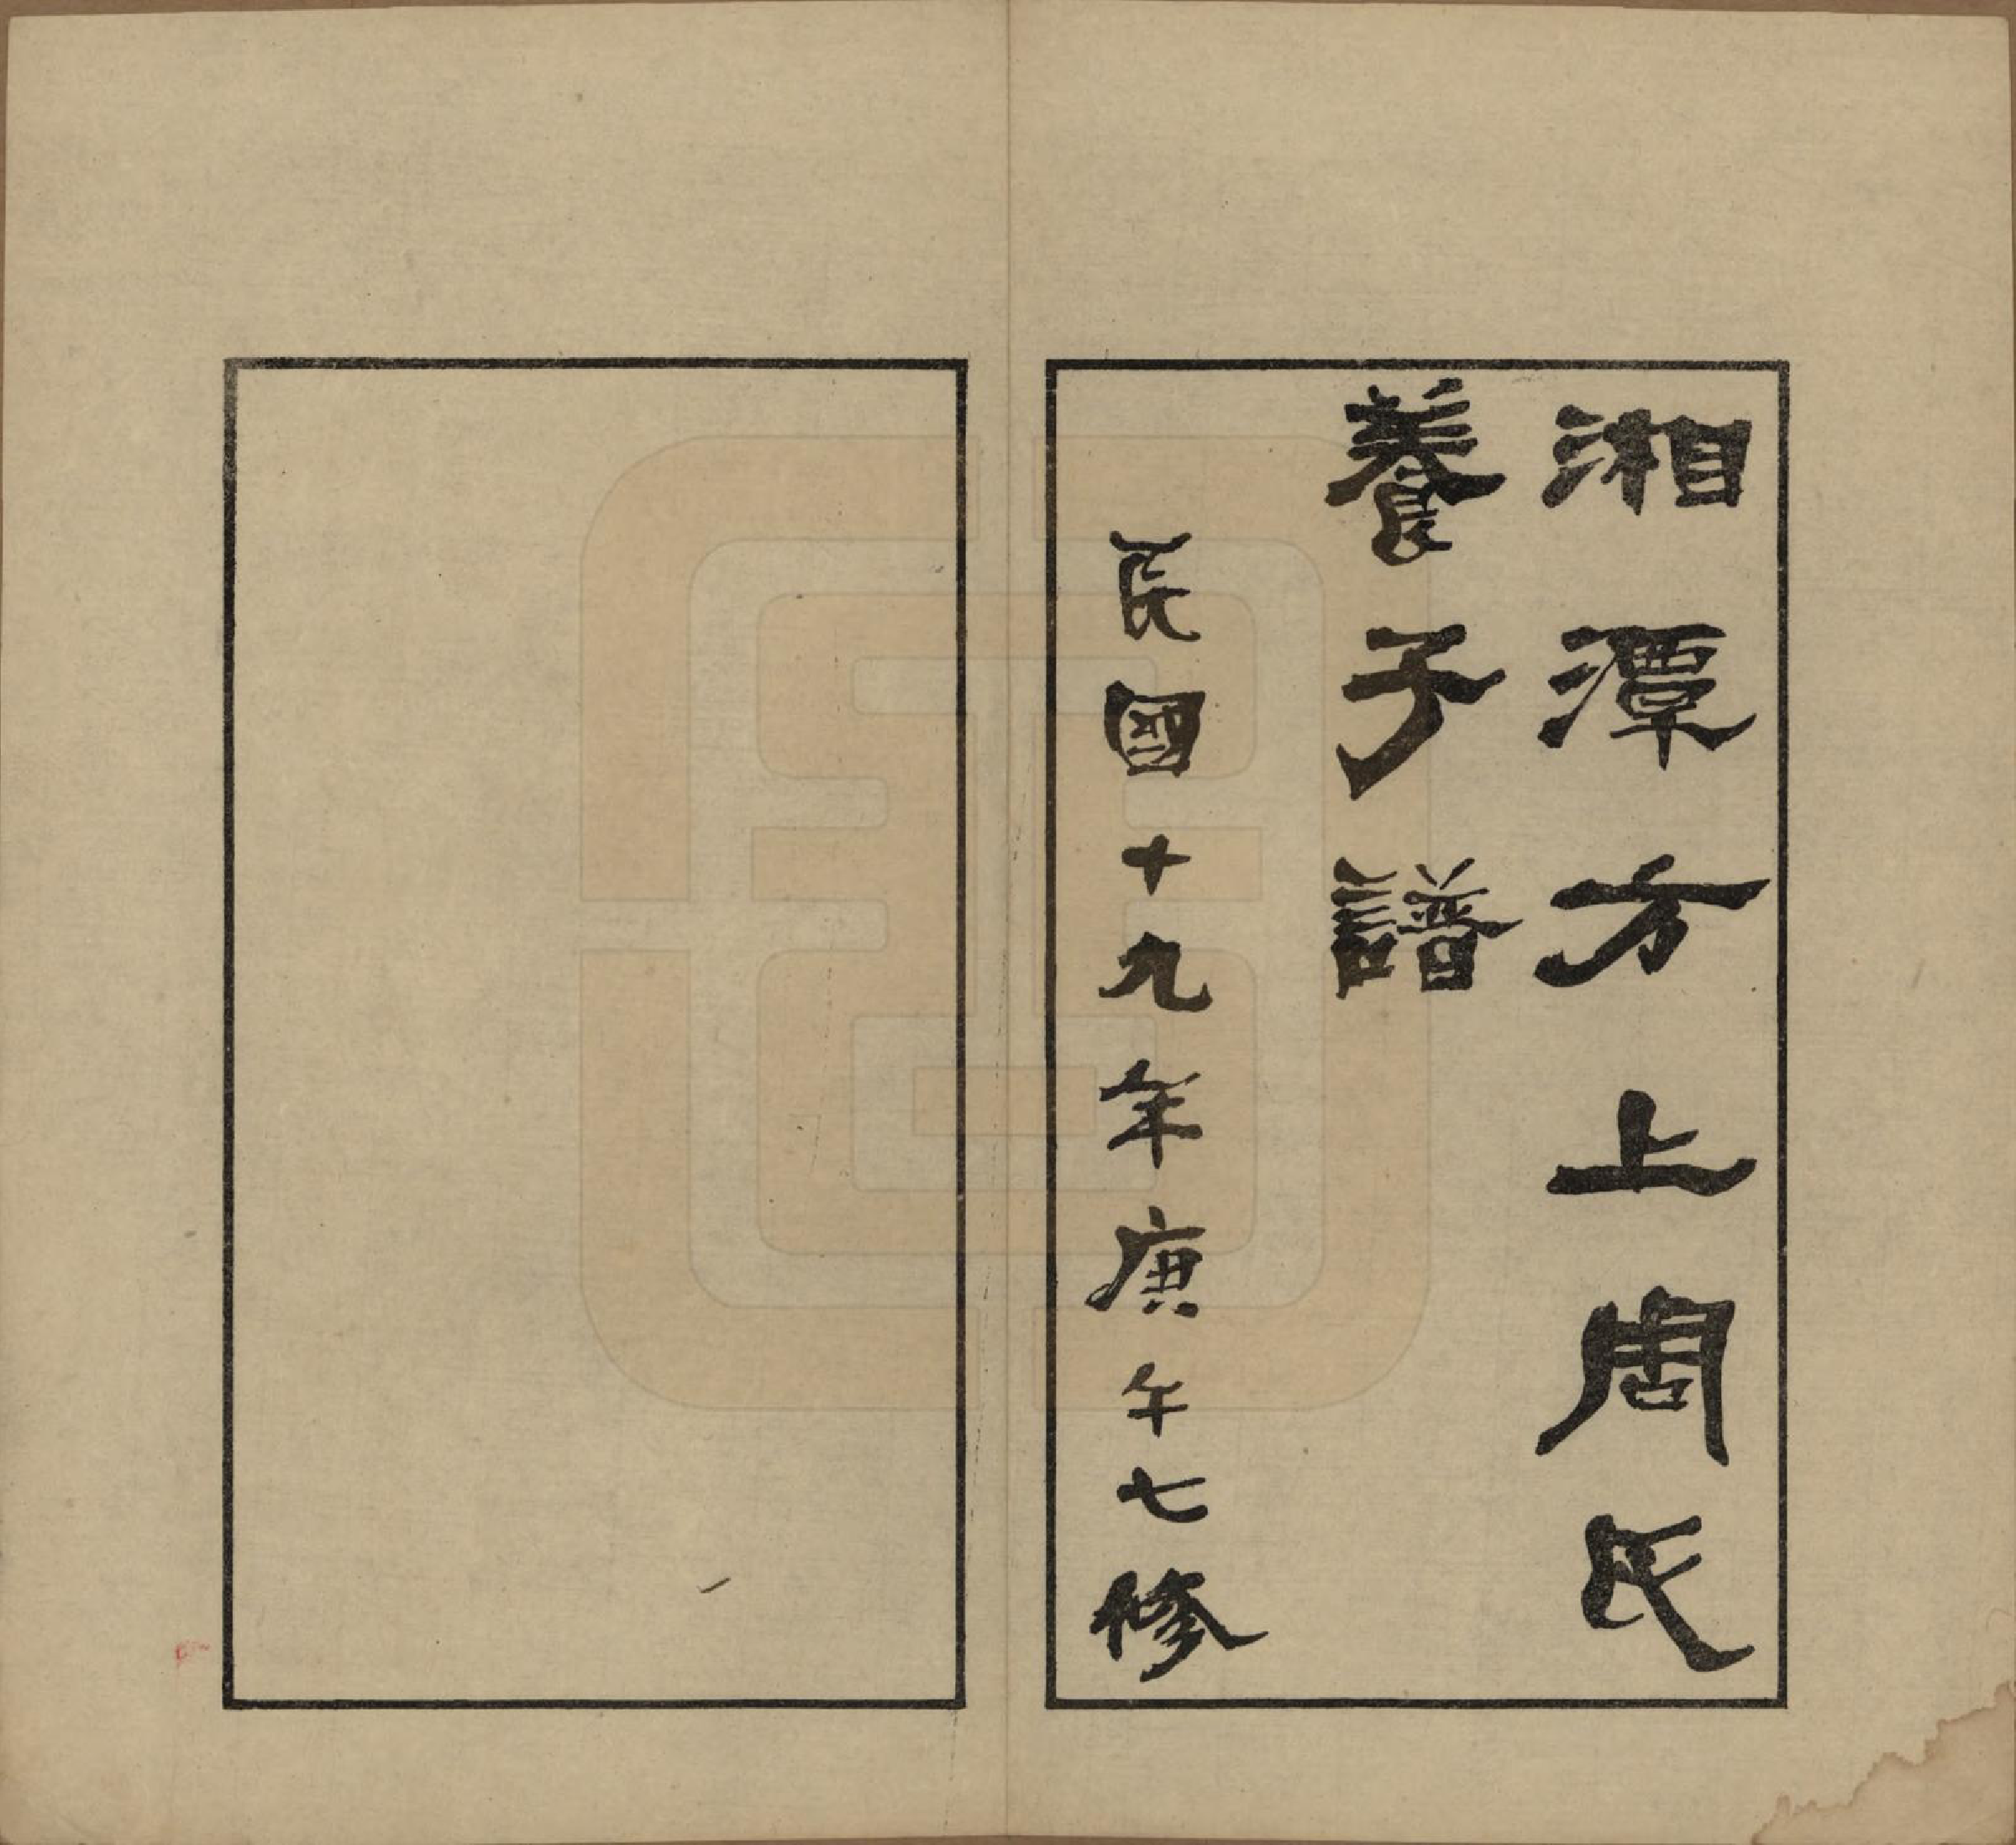 湘潭方上周氏
養子譜
民國十九年庚午七修